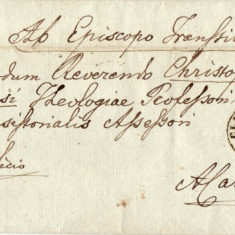 Ab Episcopo Transsil
dum Reverendo Christo
si Theologiae Professori
sistorialis Assessori
Alba